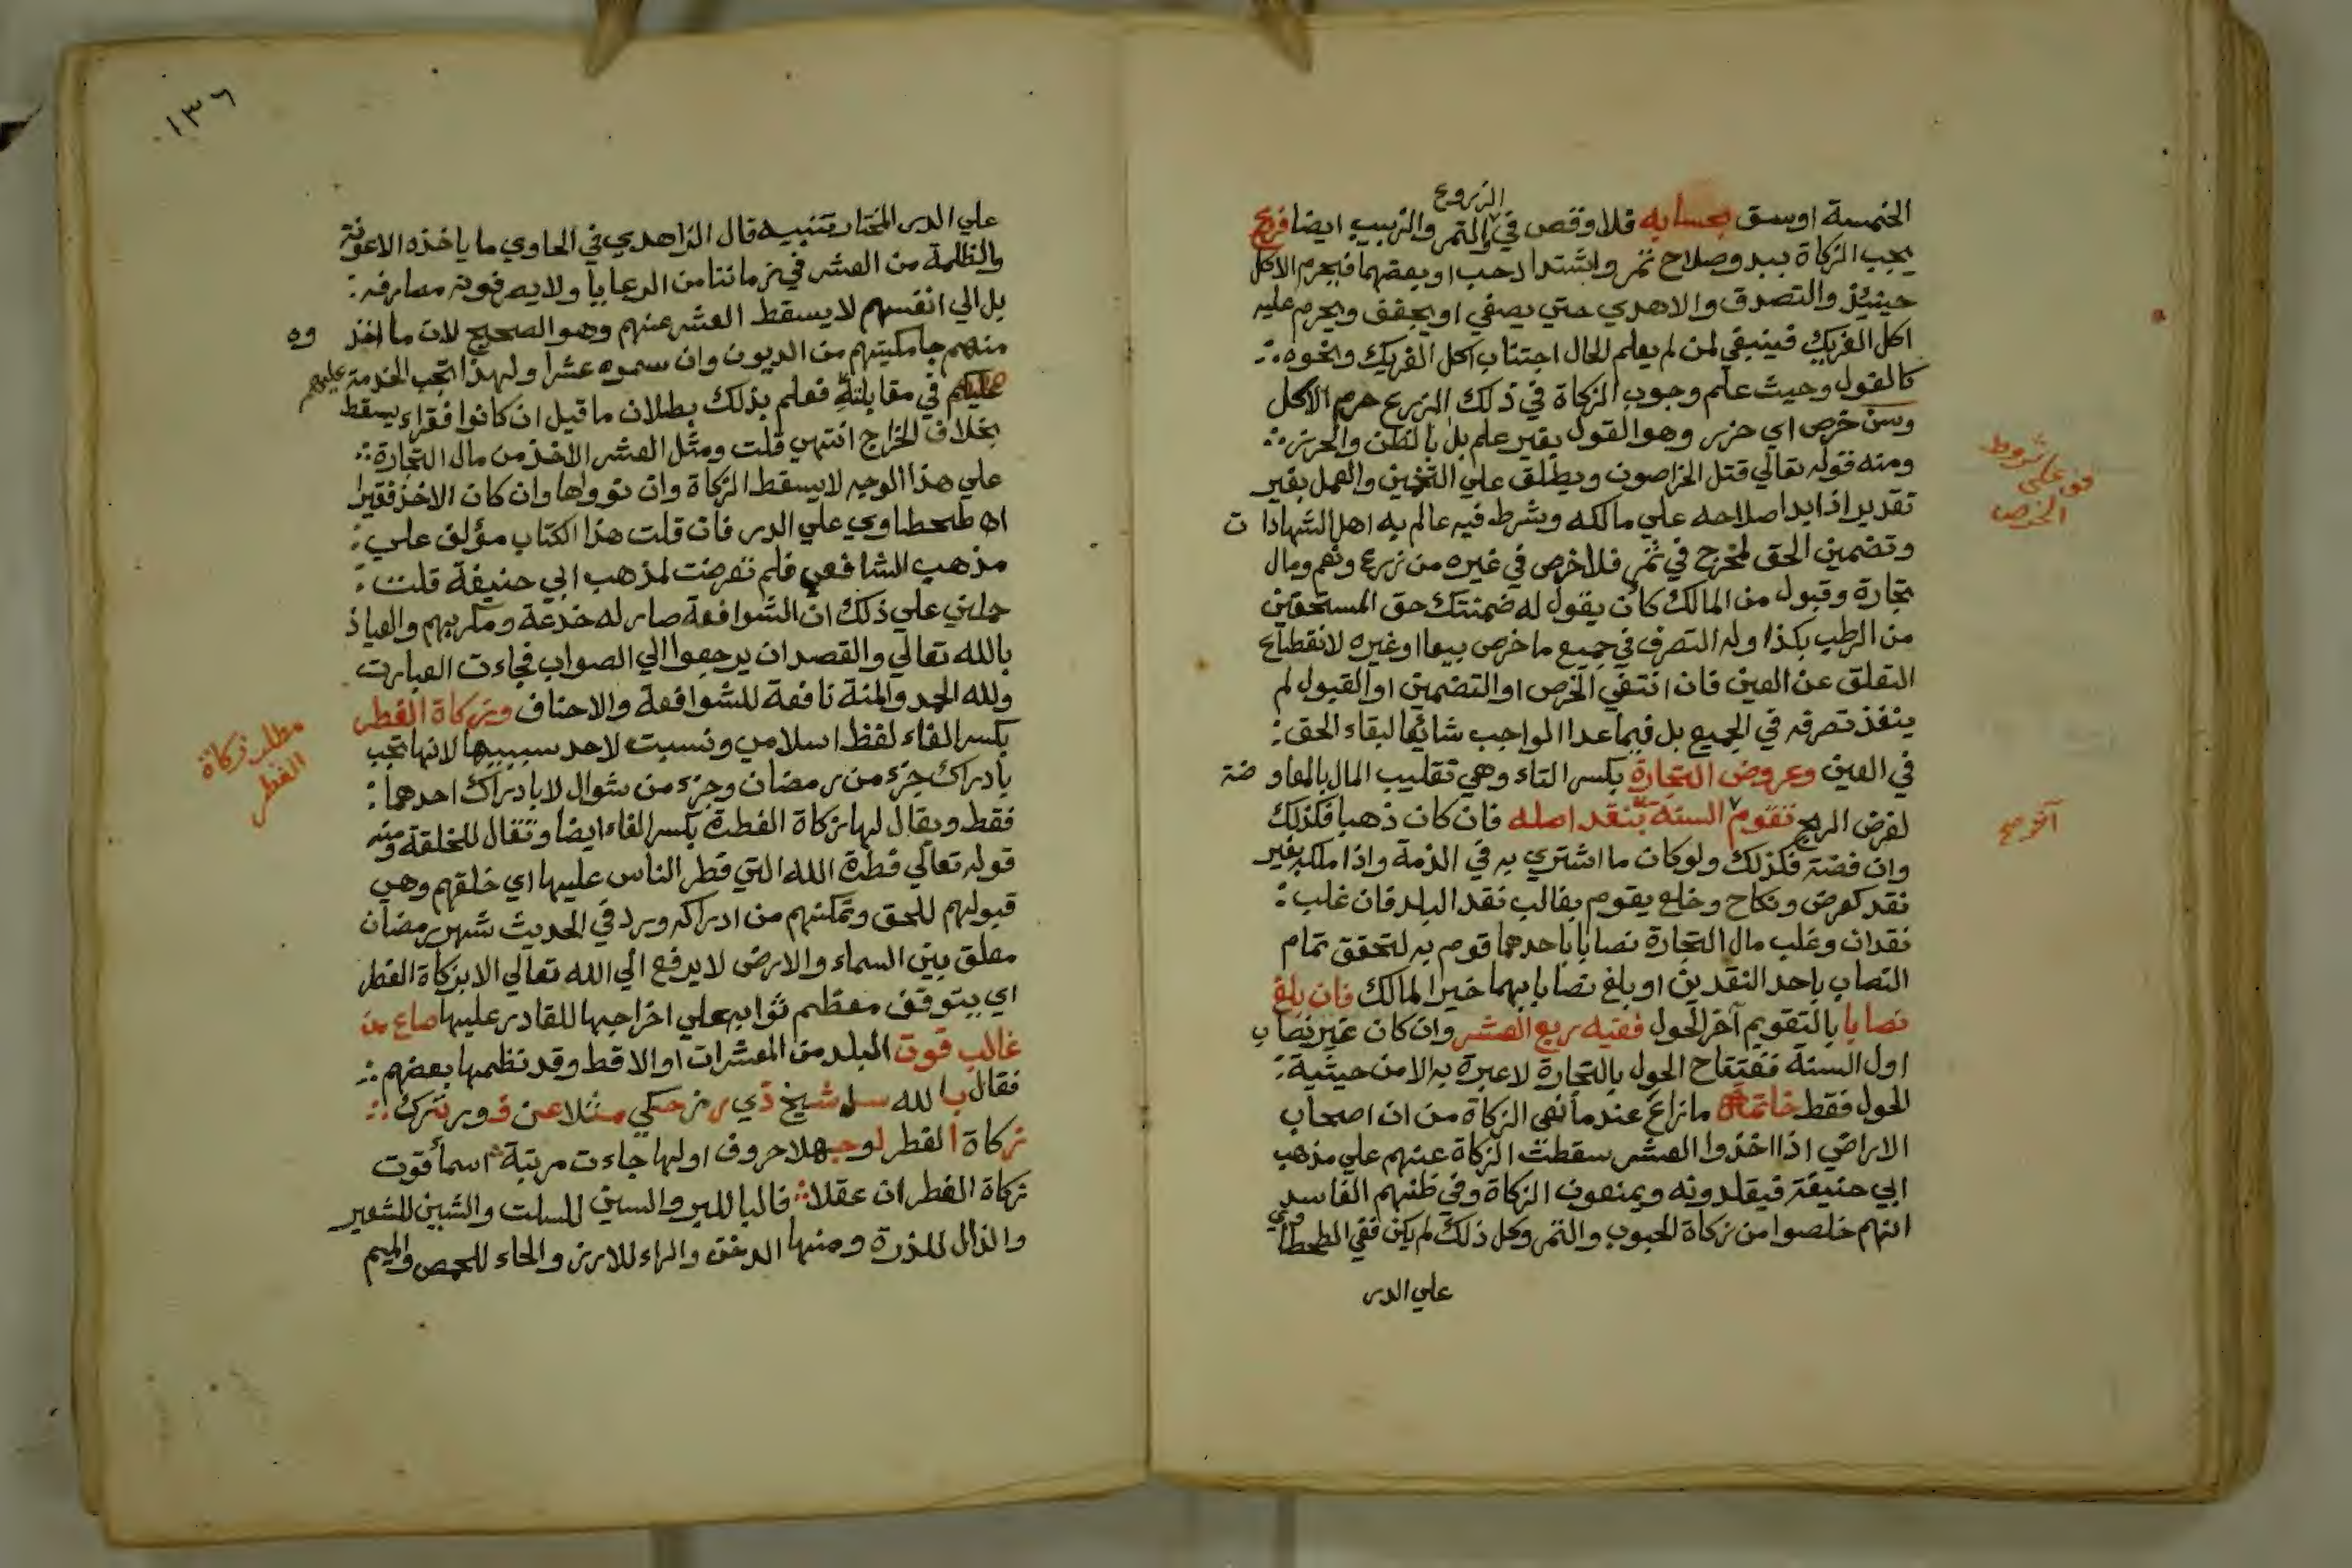 الزروع
الخمسة اوسق بحسابه فلا وقص في والتمر والزبيب ايضا فرع
يجب الزكاة ببدو صلاح ثمر واشتداد حب او بعضهما فيحرم الاكل
حينئذ والتصدق والاهدي حتي يصفي او يجفف ويحرم عليه
اكل الفريك فينبغي لمن لم يعلم الحال اجتناب اكل الفريك ونحوه
كالفول وحيث علم وجوب الزكاة في ذلك الزرع حرم الاكل
وسن خرص اي حزر وهو القول بغير علم بل بالظن والحزر
ومنه قوله تعالي قتل الخراصون ويطلق علي التخمين والعمل بغير
تقدير اذا بدا صلاحه علي مالكه وشرط فيه عالم به اهل الشهادات
وتضمين الحق لمخرج في ثمر فلا خرص في غيره من زرع ونعم ومال
تجارة وقبول من المالك كأن يقول له ضمنتك حق المستحقين
من الرطب بكذا وله التصرف في جميع ما خرص بيعا او غيره لانقطاع
التعلق عن العين فان انتفي الخرص او التضمين او القبول لم
ينفذ تصرفه في الجميع بل فيما عدا الواجب شائعا لبقاء الحق
في العين وعروض التجارة بكسر التاء وهي تقليب المال بالمعاوضة
لغرض الربح تقوم السنة بنقد اصله فان كان ذهبا فكذلك
وان فضة فكذلك ولو كان ما اشتري به في الذمة واذا ملكه بغير
نقد كعرض ونكاح وخلع يقوم بغالب نقد البلد فان غلب
نقدان وغلب مال التجارة نصابا باحدهما قوم به لتحقق تمام
النصاب باحد النقدين او بلغ نصابا بهما خير المالك فان بلغ
نصابا بالتقويم آخر الحول ففيه ربع العشر وان كان غير نصاب
اول السنة ففتقاح الحول بالتجارة لا عبرة به الا من حيثية
الحول فقط خاتمة ما نراع عندما نهى الزكاة من ان اصحاب
الاراضي اذا اخذوا العشر سقطت الزكاة عنهم علي مذهب
ابي حنيفة فيقلدونه ويمنعون الزكاة وفي ظنهم الفاسد
انهم خلصوا من زكاة الحبوب والتمر وكل ذلك لم يكن ففي الطحطاوي
علي الدر
شروط
علي
الخرص
آخر صح
١٣٦
علي الدر المختار تنبيه قال الزاهدي في الحاوي ما ياخذه الاعونة
والظلمة من العشر في زماننا من الرعايا ولا يصرفونه مصارفه
بل الي انفسهم لا يسقط العشر عنهم وهو الصحيح لان ما اخذوه
منهم جامكيتهم من الديون وان سموه عشرا ولهذا تجب الخدمة عليهم
في مقابلته فعلم بذلك بطلان ما قيل ان كانوا فقراء يسقط
بخلاف الخراج انتهي قلت ومثل العشر الاخذ من مال التجارة
علي هذا الوجه لا يسقط الزكاة وان نووها وان كان الاخذ فقيرا
اه طحطاوي علي الدر فان قلت هذا الكتاب مؤلف علي
مذهب الشافعي فلم تعرضت لمذهب ابي حنيفة قلت
حملني علي ذلك ان الشوافعة صار له خدعة ومكر بهم والعياذ
بالله تعالي والقصد ان يرجعوا الي الصواب فجاءت العبارت
ولله الحمد والمنة نافعة للشوافعة والاحناف وزكاة الفطر
بكسر الفاء لفظ اسلامي ونسبت لاحد سببيها لانها تجب
بادراك جزء من رمضان وجزء من شوال لا بادراك احدهما
فقط ويقال لها زكاة الفطرة بكسر الفاء ايضا وتقال للخلقة ومنه
قوله تعالي فطرة الله التي فطر الناس عليها اي خلقهم وهي
قبولهم للحق وتمكنهم من ادراكه ورد في الحديث شهر رمضان
معلق بين السماء والارض لا يرفع الي الله تعالي الا بزكاة الفطر
اي يتوقف معظم ثوابه علي اخراجها للقادر عليها صاع من
غالب قوت البلد من المعشرات او الاقط وقد نظمها بعضهم
فقال بالله سل شيخ ذي رمز حكي مثلا عن فور ترك
زكاة الفطر لو جهلا حروف اولها جاءت مرتبة اسما قوت
زكاة الفطر ان عقلا فالبا للبر والسين للسلت والشين للشعير
والذال للذرة ومنها الدخن والراء للارز والحاء للحمص والميم
مطلب زكاة
الفطر